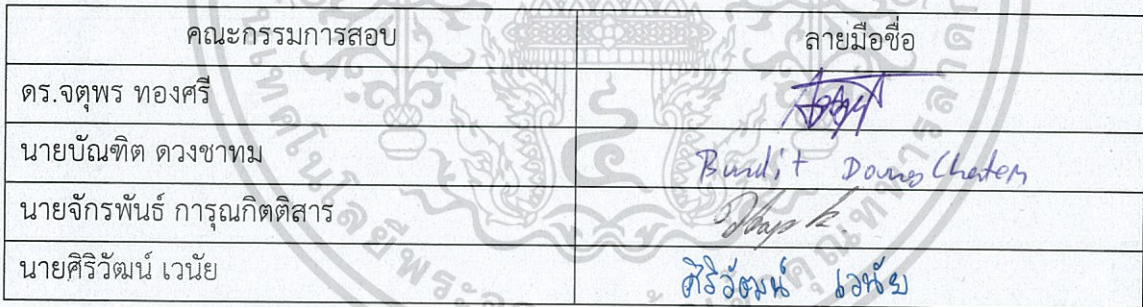 คณะกรรมการสอบ ลายมือชื่อ
ดร.จตุพร ทองศรี
นายบัณฑิต ดวงชาทม Bundit DoungChatem
นายจักรพันธ์ การุณกิตติสาร
นายศิริวัฒน์ เวนัย ศิริวัฒน์ เวนัย